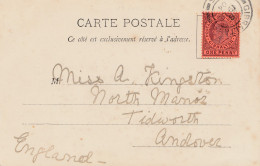 CARTE POSTALE
Ce côté est exclusivement réservé à l'adresse.
M Miss A. Kingston
North Manor
Tidworth
Andover
England
ONE PENNY